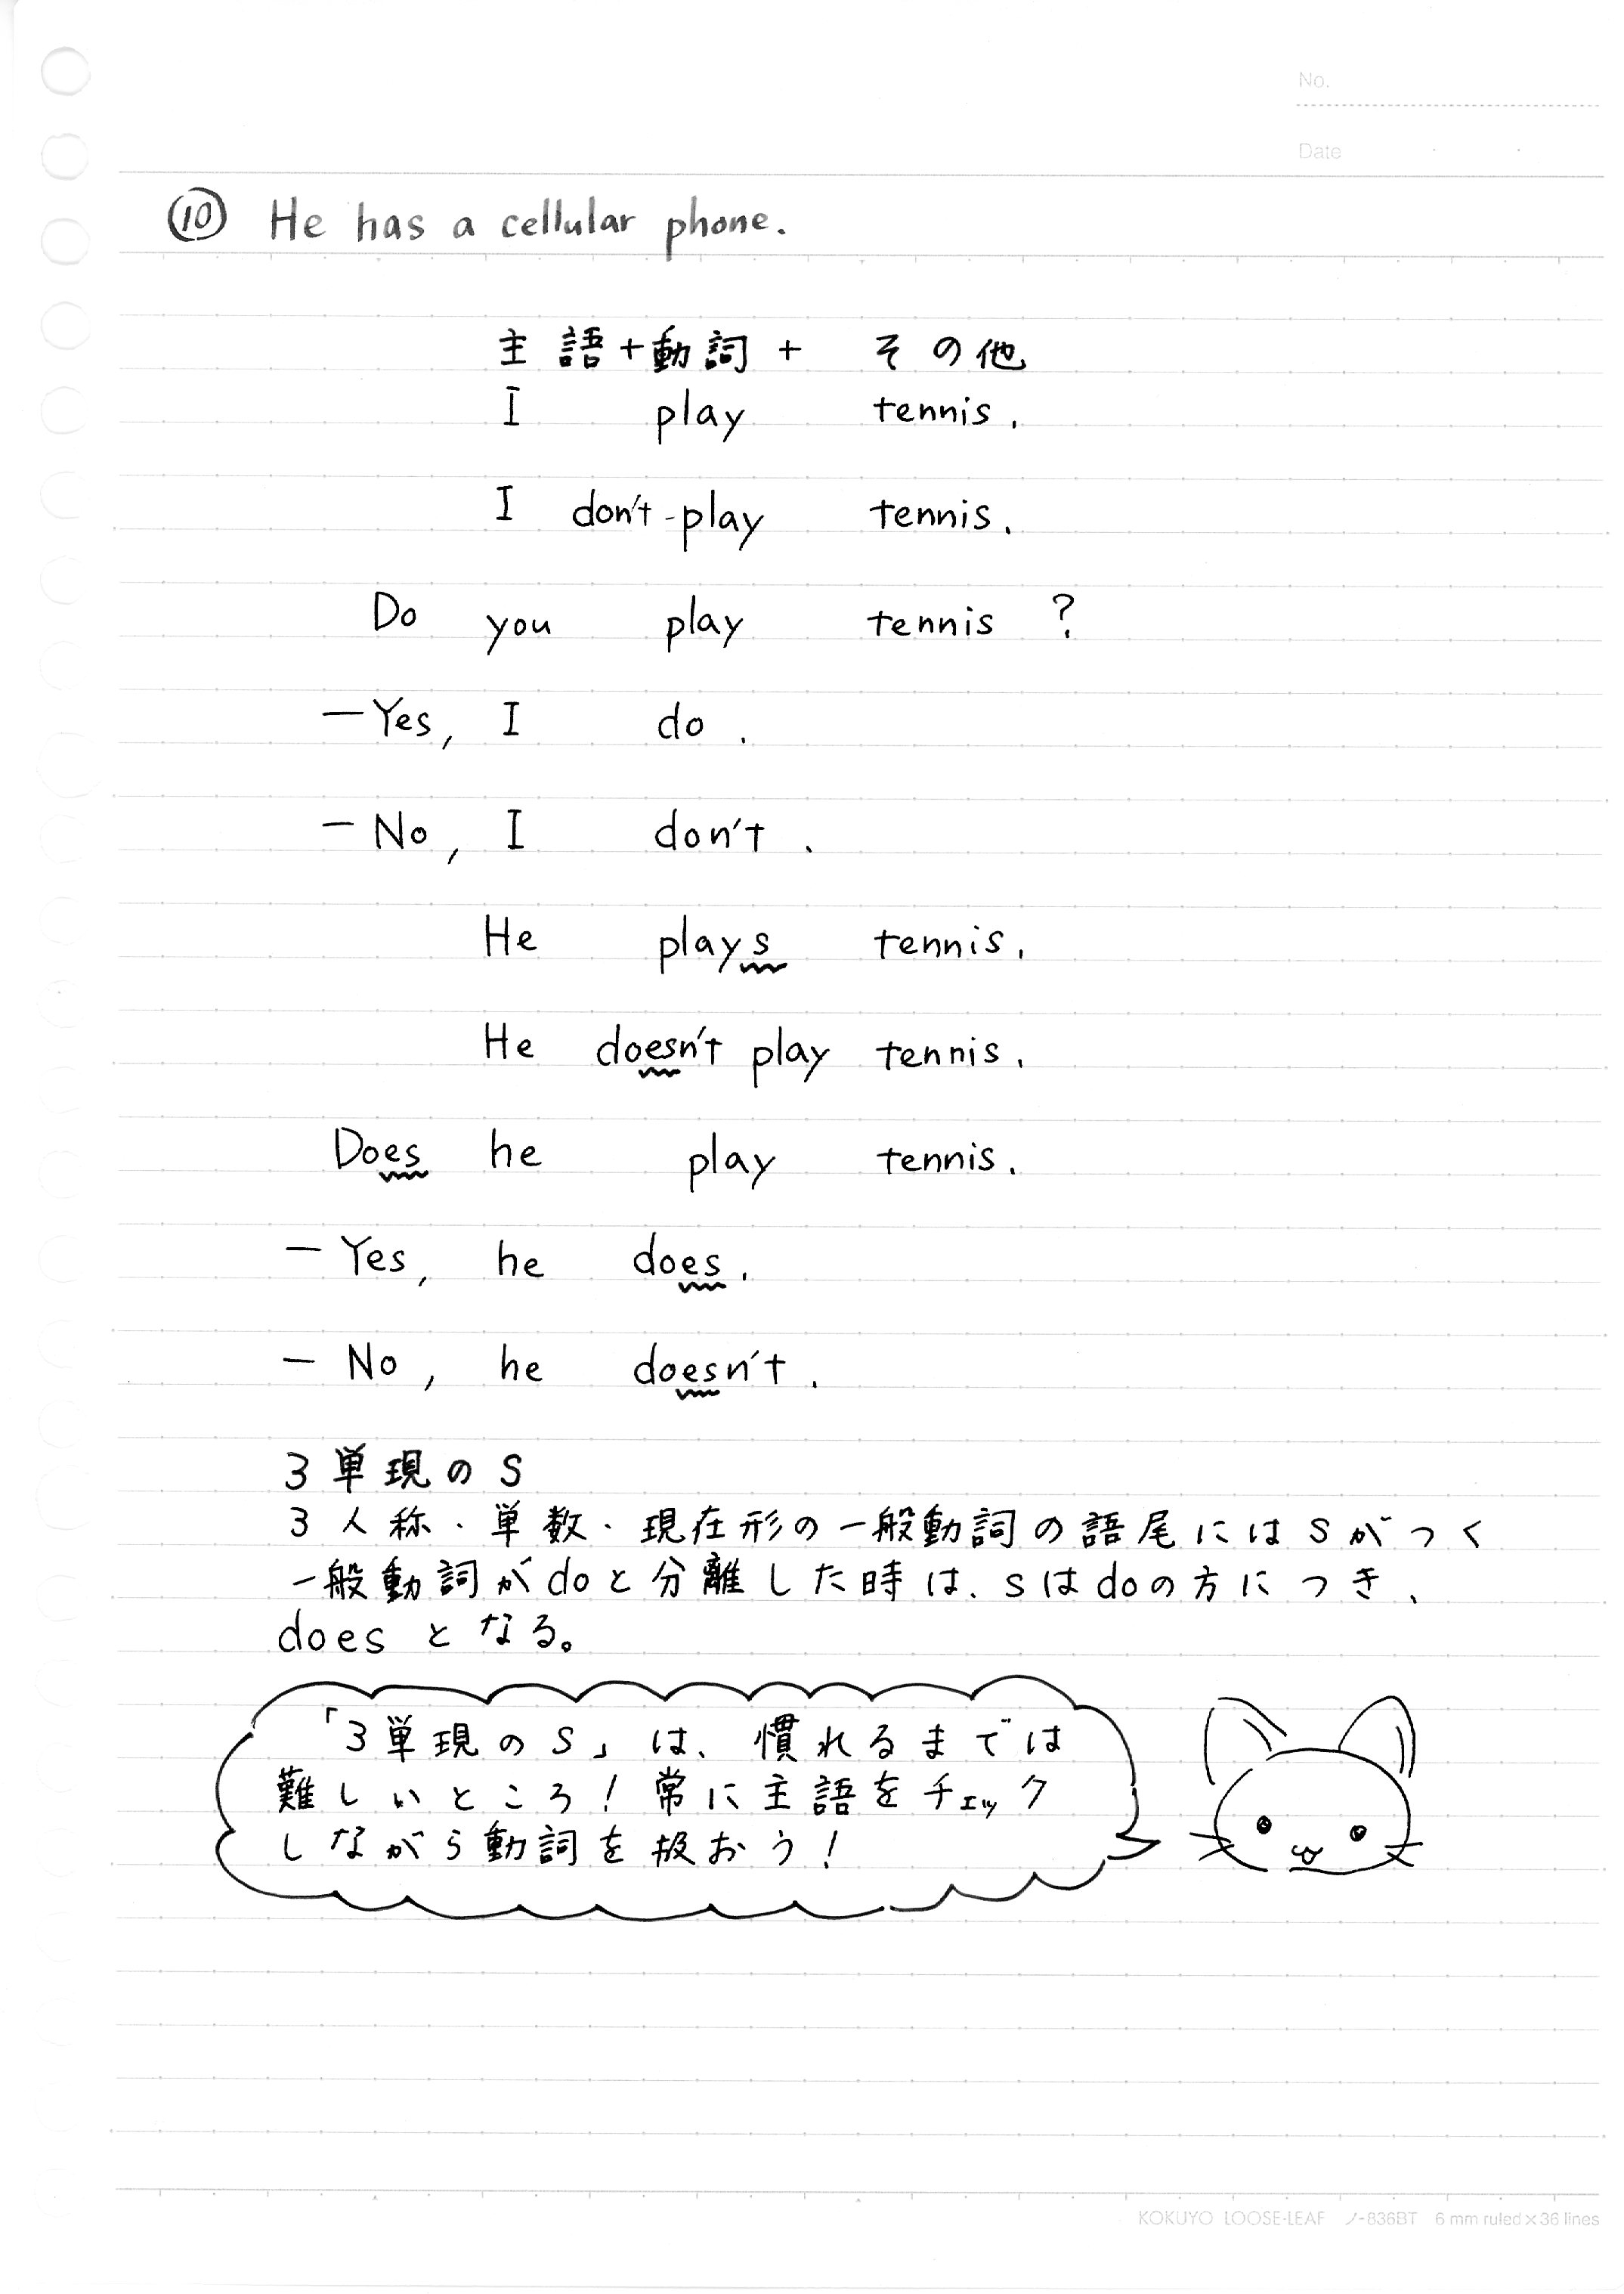 No.
Date
⑩ He has a cellular phone.
主語+動詞+ その他
I play tennis.
I don't play tennis.
Do you play tennis ?
—Yes, I do.
— No, I don't.
He plays tennis.
He doesn't play tennis.
Does he play tennis.
— Yes, he does.
— No, he doesn't.
3単現のS
3人称・単数・現在形の一般動詞の語尾にはsがつく
一般動詞がdoと分離した時は、sはdoの方につき、
doesとなる。
「3単現のS」は、慣れるまでは
難しいところ!常に主語をチェック
しながら動詞を扱おう!
KOKUYO LOOSE-LEAF ノ-836BT 6 mm ruled×36 lines